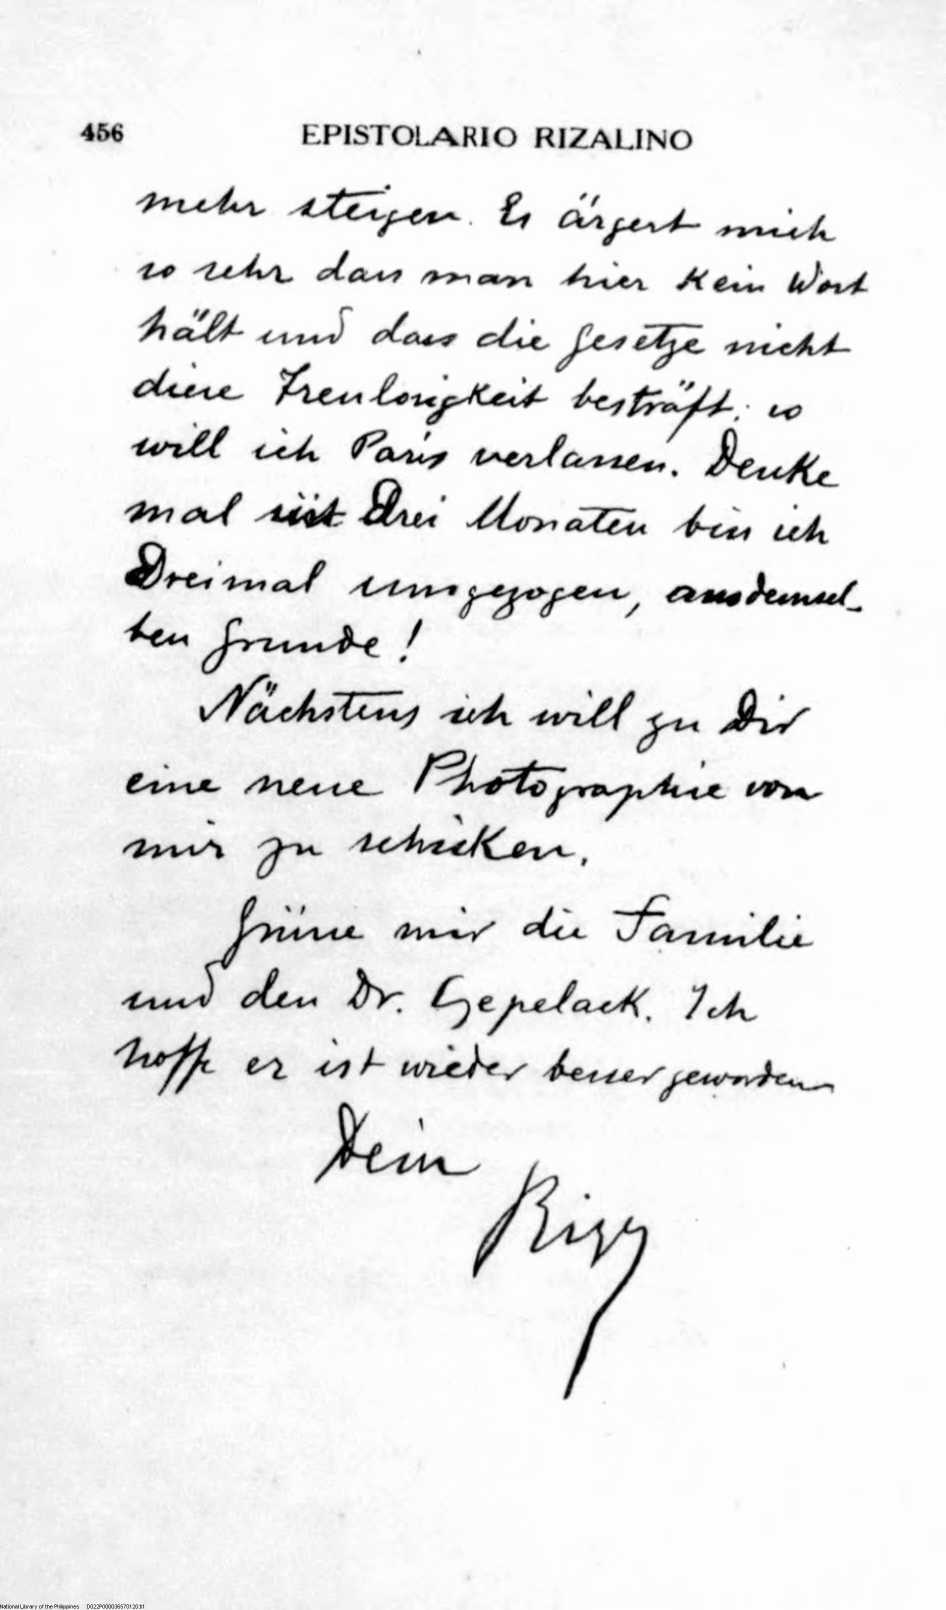 456 EPISTOLARIO RIZALINO
mehr steigen. Es ärgert mich
so sehr dass man hier kein Wort
hält und dass die Gesetze nicht
diese Treulosigkeit besträft; so
will ich Paris verlassen. Denke
mal seit Drei Monaten bin ich
Dreimal umgezogen, aus demsel-
ben Grunde!
Nächstens ich will zu Dir
eine neue Photographie von
mir zu schicken.
Grüsse mir die Familie
und den Dr. Czepelack. Ich
hoffe er ist wieder besser geworden
Dein
Rizal
National Library of the Philippines